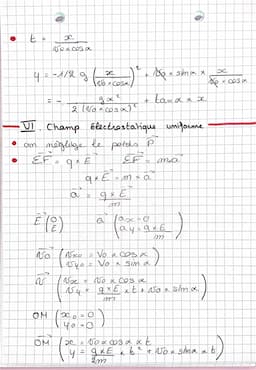 • t = x / (v₀ × cos α)
y = -1/2 g (x / (v₀ × cos α))² + v₀ × sin α × x / (v₀ × cos α)
= - g x² / (2 (v₀ × cos α)²) + tan α × x
VI. Champ électrostatique uniforme
• on néglige le poids P⃗
• ΣF⃗ = q × E⃗    ΣF⃗ = ma⃗
q × E⃗ = m × a⃗
a⃗ = q × E⃗ / m
E⃗ (0 / E)    a⃗ (ax = 0 / ay = q × E / m)
v₀⃗ (vx₀ = v₀ × cos α
vy₀ = v₀ × sin α)
v⃗ (vx = v₀ × cos α
vy = q × E / m × t + v₀ × sin α)
OM (x₀ = 0
y₀ = 0)
OM⃗ (x = v₀ × cos α × t
y = q × E / 2m × t² + v₀ × sin α × t)